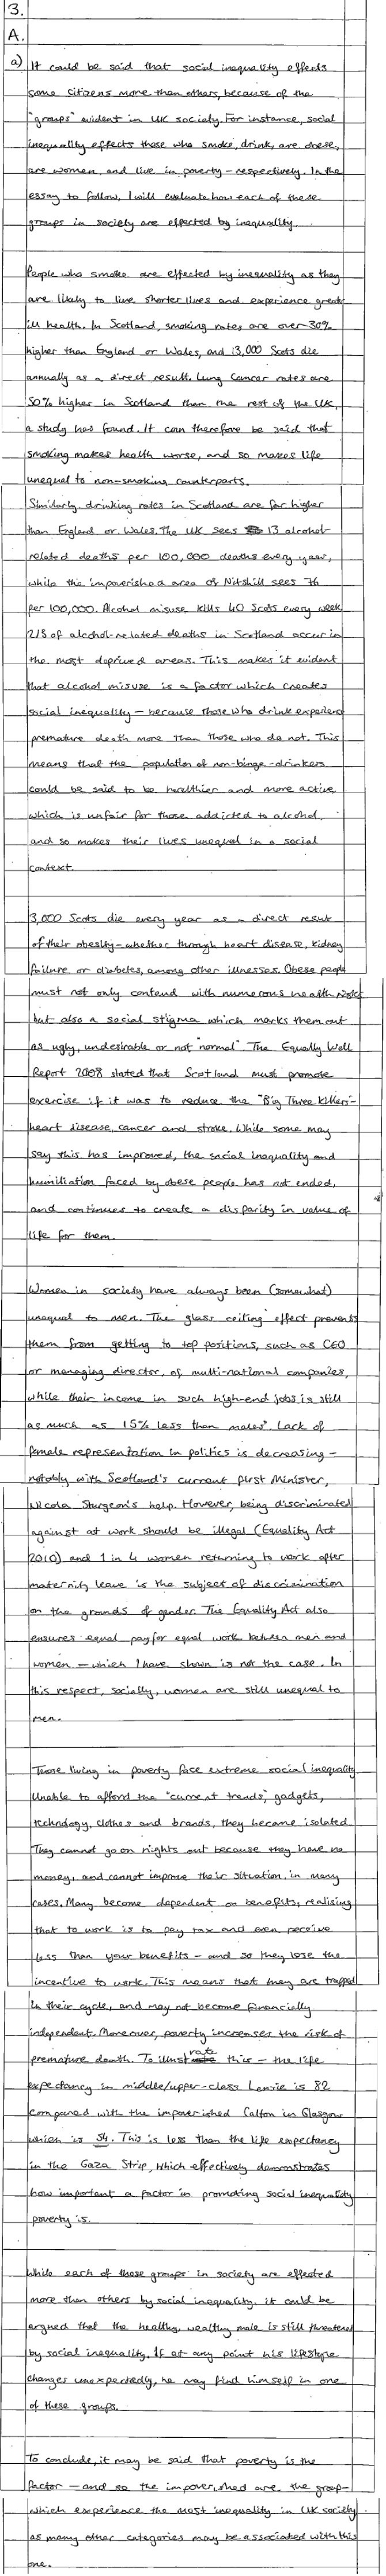 3.
A.
a) It could be said that social inequality effects
some citizens more than others, because of the
"groups" evident in UK society. For instance, social
inequality effects those who smoke, drink, are obese,
are women, and live in poverty - respectively. In the
essay to follow, I will evaluate how each of these
groups in society are effected by inequality.
People who smoke are effected by inequality as they
are likely to live shorter lives and experience greater
ill health. In Scotland, smoking rates are over 30%
higher than England or Wales, and 13,000 Scots die
annually as a direct result. Lung Cancer rates are
50% higher in Scotland than the rest of the UK,
a study has found. It can therefore be said that
smoking makes health worse, and so makes life
unequal to non-smoking counterparts.
Similarly, drinking rates in Scotland are far higher
than England or Wales. The UK sees 13 alcohol-
related deaths per 100,000 deaths every year,
while the impoverished area of Nitshill sees 76
per 100,000. Alcohol misuse kills 40 Scots every week
2/3 of alcohol-related deaths in Scotland occur in
the most deprived areas. This makes it evident
that alcohol misuse is a factor which creates
social inequality - because those who drink experience
premature death more than those who do not. This
means that the population of non-binge-drinkers
could be said to be healthier and more active,
which is unfair for those addicted to alcohol,
and so makes their lives unequal in a social
context.
3,000 Scots die every year as a direct result
of their obesity - whether through heart disease, kidney
failure or diabetes, among other illnesses. Obese people
must not only contend with numerous health risks
but also a social stigma which marks them out
as ugly, undesirable or not "normal". The Equally Well
Report 2008 stated that Scotland must promote
exercise if it was to reduce the "Big Three Killers"-
heart disease, cancer and stroke. While some may
say this has improved, the social inequality and
humiliation faced by obese people has not ended,
and continues to create a disparity in value of
life for them.
Women in society have always been (somewhat)
unequal to men. The "glass ceiling" effect prevents
them from getting to top positions, such as CEO
or managing director, of multi-national companies,
while their income in such high-end jobs is still
as much as 15% less than males'. Lack of
female representation in politics is decreasing -
notably with Scotland's current First Minister,
Nicola Sturgeon's help. However, being discriminated
against at work should be illegal (Equality Act
2010) and 1 in 4 women returning to work after
maternity leave is the subject of discrimination
on the grounds of gender. The Equality Act also
ensures equal pay for equal work between men and
women - which I have shown is not the case. In
this respect, socially, women are still unequal to
men.
Those living in poverty face extreme social inequality
Unable to afford the "current trends", gadgets,
technology, clothes and brands, they become isolated.
They cannot go on nights out because they have no
money, and cannot improve their situation in many
cases. Many become dependent on benefits, realising
that to work is to pay tax and even receive
less than your benefits - and so they lose the
incentive to work. This means that they are trapped
in their cycle, and may not become financially
independent. Moreover, poverty increases the risk of
premature death. To illustrate this - the life
expectancy in middle/upper-class Lenzie is 82
compared with the impoverished Calton in Glasgow
which is 54. This is less than the life expectancy
in the Gaza Strip, which effectively demonstrates
how important a factor in promoting social inequality
poverty is.
While each of these groups in society are effected
more than others by social inequality, it could be
argued that the healthy, wealthy male is still threatened
by social inequality. If at any point his lifestyle
changes unexpectedly, he may find himself in one
of these groups.
To conclude, it may be said that poverty is the
factor - and so the impoverished are the group -
which experience the most inequality in UK society.
as many other categories may be associated with this
one.